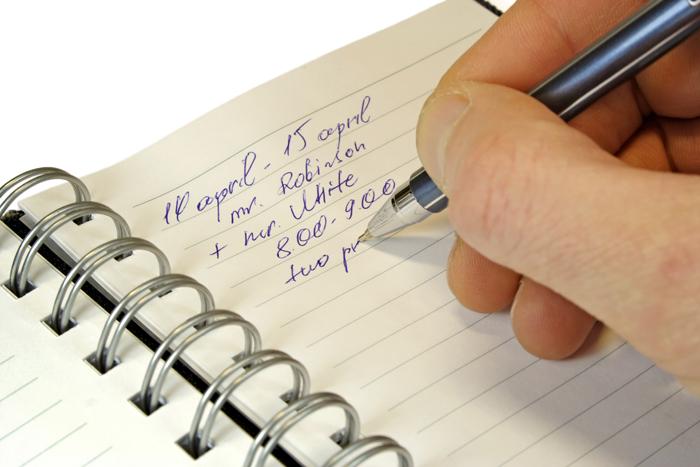 14 april - 15 april
mr. Robinson
+ mr. White
800-900
two pr